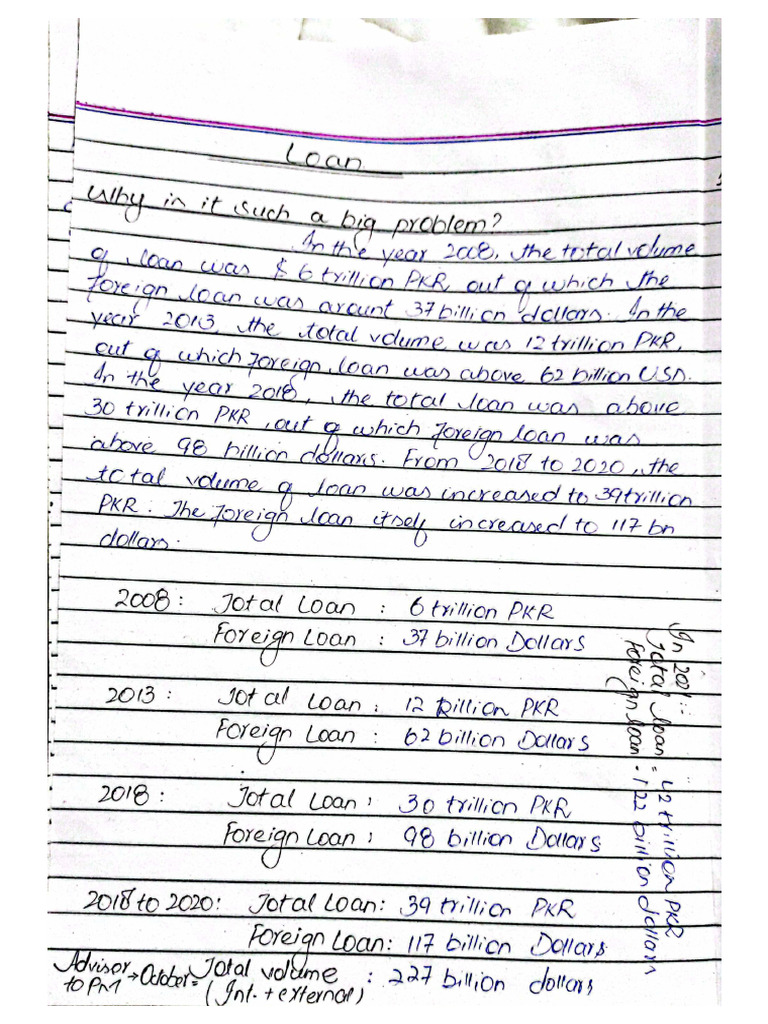 Loan
Why in it such a big problem?
In the year 2008, the total volume
of loan was $ 6 trillion PKR, out of which the
foreign loan was arount 37 billion dollars. In the
year 2013, the total volume was 12 trillion PKR,
out of which foreign loan was above 62 billion USD.
In the year 2018, the total loan was above
30 trillion PKR, out of which foreign loan was
above 98 billion dollars. From 2018 to 2020, the
total volume of loan was increased to 39 trillion
PKR. The foreign loan itself increased to 117 bn
dollars.
2008: Total Loan : 6 trillion PKR
Foreign Loan : 37 billion Dollars
2013: Total Loan : 12 trillion PKR
Foreign Loan : 62 billion Dollars
2018: Total Loan : 30 trillion PKR
Foreign Loan : 98 billion Dollars
2018 to 2020: Total Loan: 39 trillion PKR
Foreign Loan: 117 billion Dollars
Advisor to PM → October = Total volume : 227 billion dollars
(Int. + external)
In 2021:-
Total loan = 42 trillion PKR
Foreign loan = 122 billion dollars